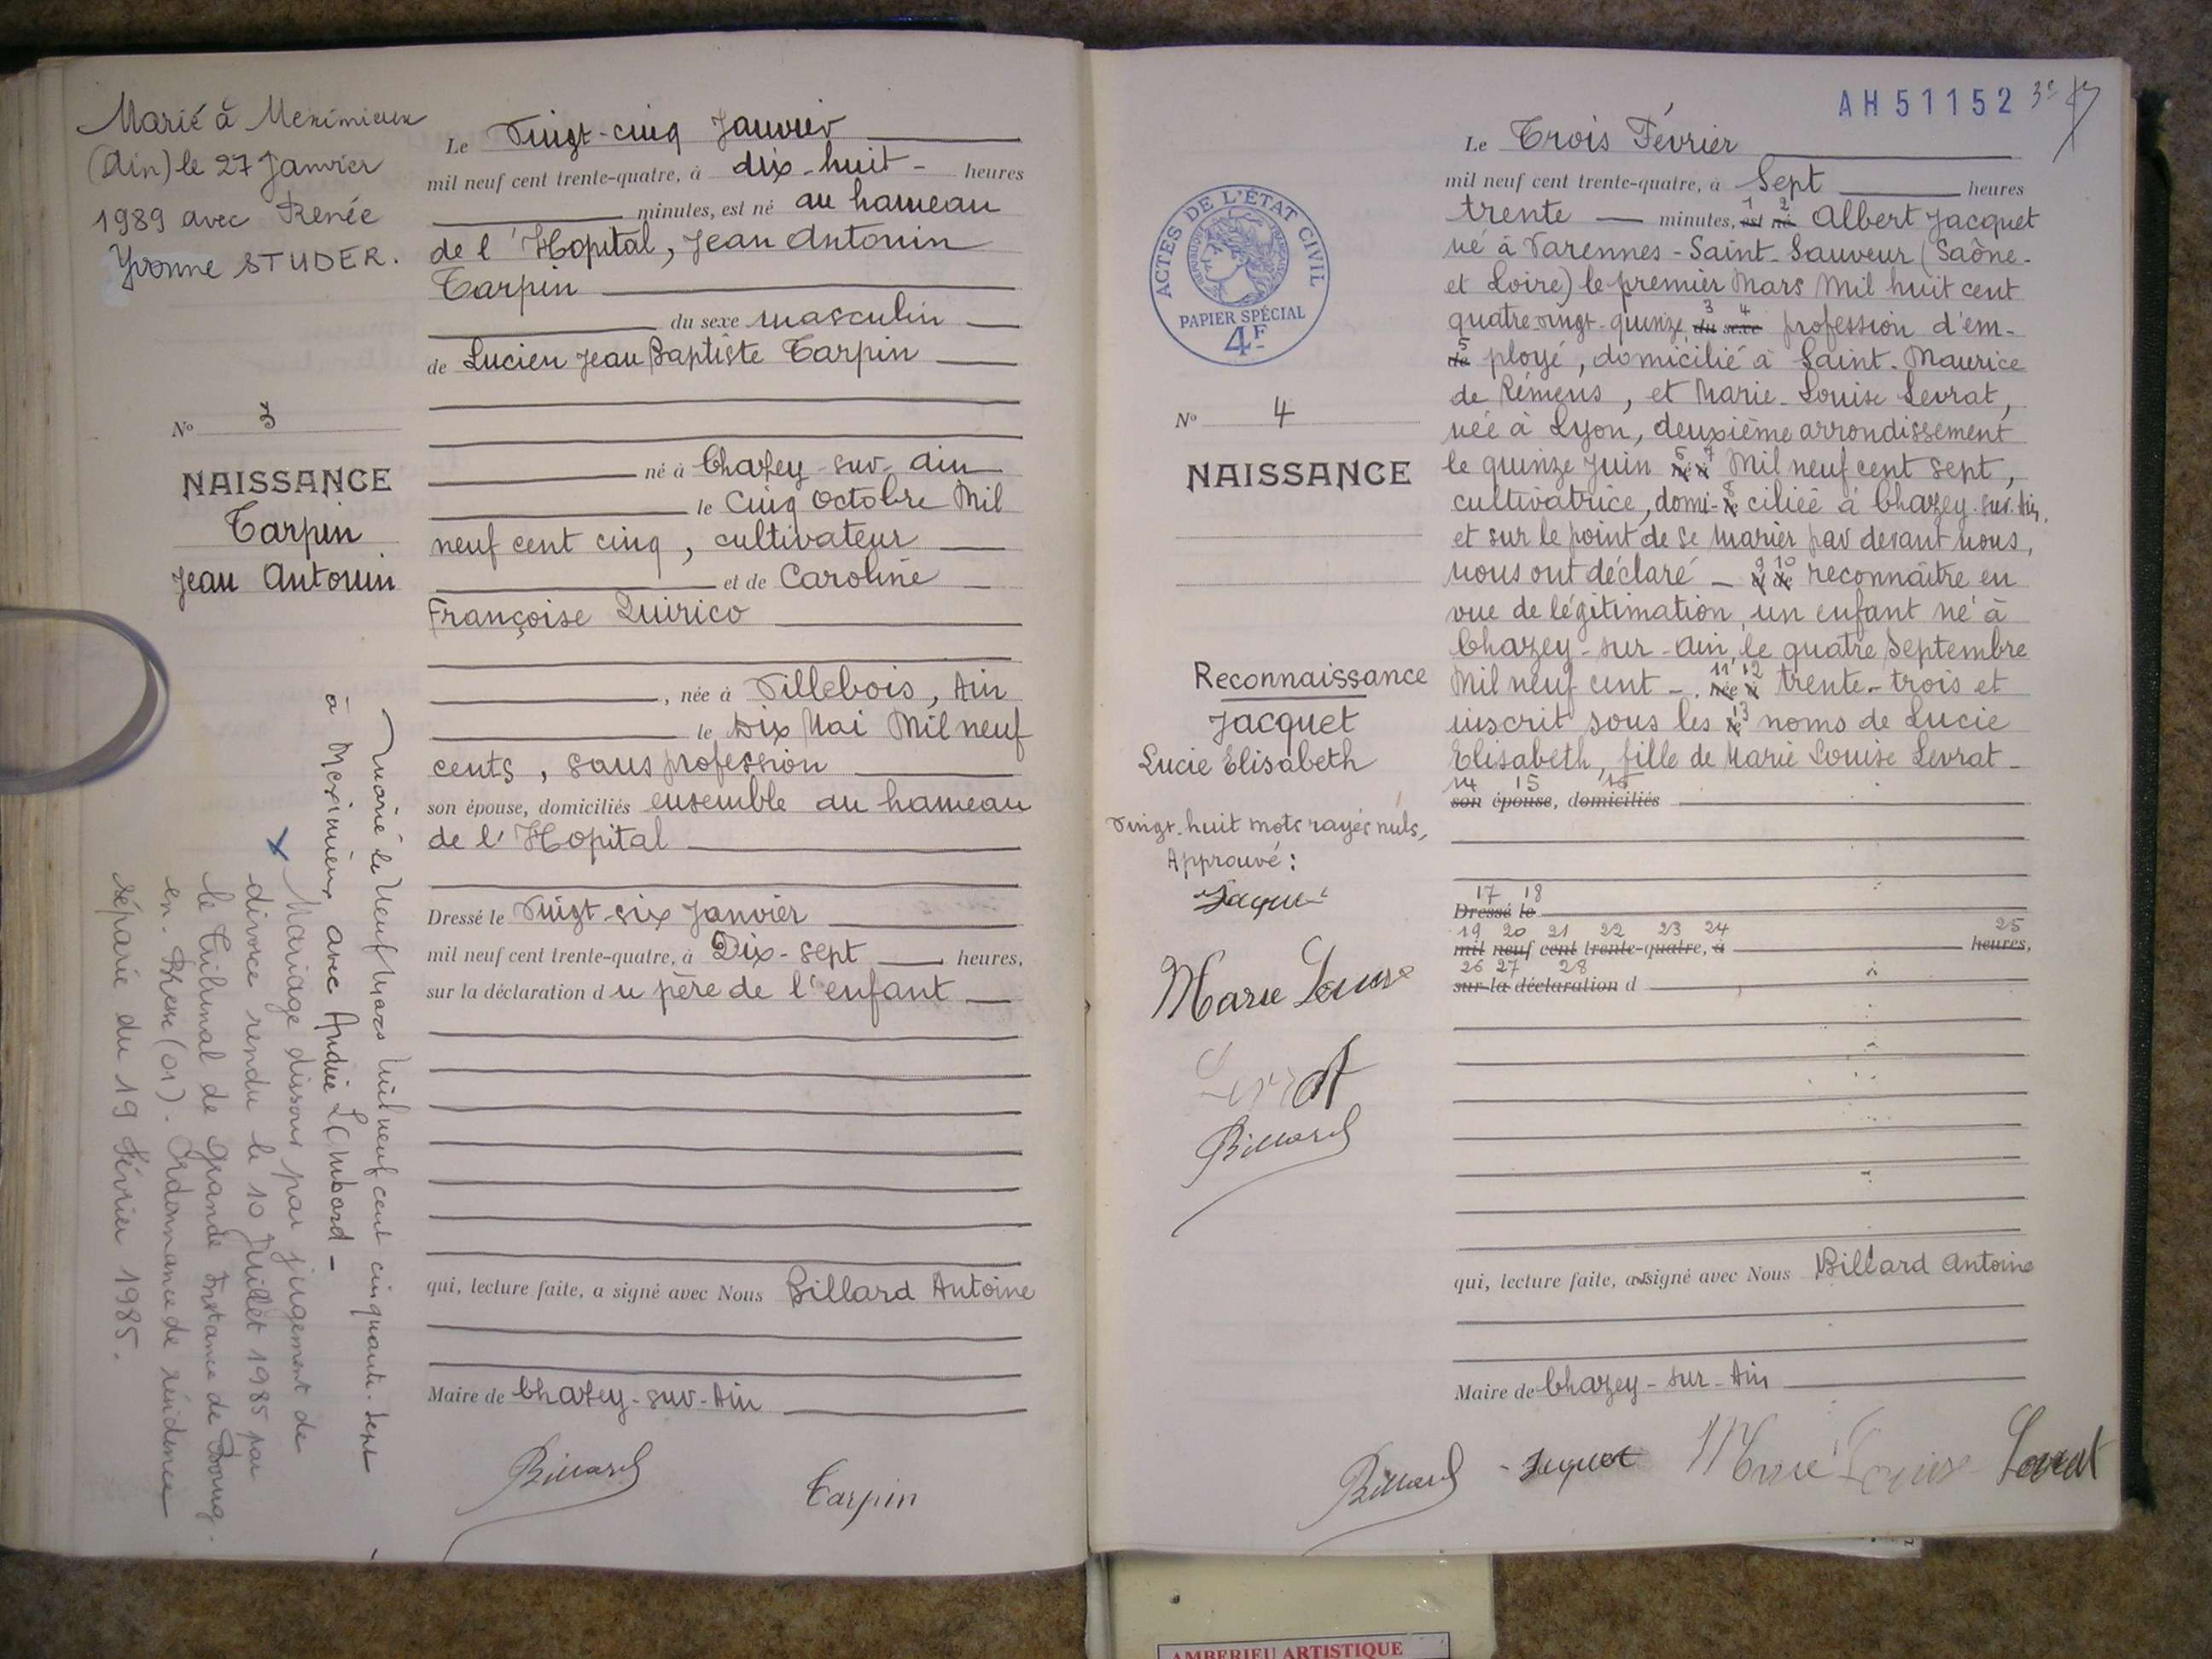 Marié à Meximieux
(Ain) le 27 Janvier
1989 avec Renée
Yvonne STUDER.
N° 3
NAISSANCE
Tarpin
Jean Antonin
Le Vingt-cinq Janvier
mil neuf cent trente-quatre, à dix-huit- heures
minutes, est né au hameau
de l'Hopital, Jean Antonin
Tarpin
du sexe masculin
de Lucien Jean Baptiste Tarpin
né à Chazey-sur-Ain
le Cinq Octobre Mil
neuf cent cinq, cultivateur
et de Caroline
Françoise Quirico
, née à Villebois, Ain
le Dix Mai Mil neuf
cents, sans profession
son épouse, domiciliés ensemble au hameau
de l'Hopital
Dressé le Vingt-six Janvier
mil neuf cent trente-quatre, à Dix-sept heures,
sur la déclaration du père de l'enfant
qui, lecture faite, a signé avec Nous Billard Antoine
Maire de Chazey-sur-Ain
Billard Tarpin
Marié le Neuf Mars Mil neuf cent cinquante-sept
à Meximieux avec Andrée
X Mariage dissous par jugement de
divorce rendu le 10 Juillet 1985 par
le Tribunal de Grande Instance de Bourg-
en-Bresse (01). Ordonnance de résidence
séparée du 19 Février 1985.
AH51152
3e
ACTES DE L'ÉTAT CIVIL
RÉPUBLIQUE FRANÇAISE
PAPIER SPÉCIAL
4F
N° 4
NAISSANCE
Reconnaissance
Jacquet
Lucie Elisabeth
Vingt-huit mots rayés nuls,
Approuvé:
Jaquet
Marie Louise
Levrat
Billard
Le Trois Février
mil neuf cent trente-quatre, à Sept heures
1 2
trente minutes, est né Albert Jacquet
né à Varennes-Saint-Sauveur (Saône-
et Loire) le premier Mars Mil huit cent
3 4
quatre vingt-quinze du sexe profession d'em-
5
de ployé, domicilié à Saint-Maurice
de Rémens, et Marie-Louise Levrat,
née à Lyon, deuxième arrondissement
6 7
le quinze Juin né à Mil neuf cent sept,
8
cultivatrice, domi- le ciliée à Chazey-sur-Ain,
et sur le point de se marier par devant nous,
9 10
nous ont déclaré et de reconnaître en
vue de légitimation, un enfant né à
Chazey-sur-Ain, le quatre Septembre
11 12
Mil neuf cent - née à trente-trois et
13
inscrit sous les le noms de Lucie
Elisabeth, fille de Marie Louise Levrat-
14 15 16
son épouse, domiciliés
17 18
Dressé le
19 20 21 22 23 24 25
mil neuf cent trente-quatre, à heures,
26 27 28
sur la déclaration d
qui, lecture faite, ont signé avec Nous Billard Antoine
Maire de Chazey-sur-Ain
Billard Jaquet Marie Louise Levrat
AMBERIEU ARTISTIQUE